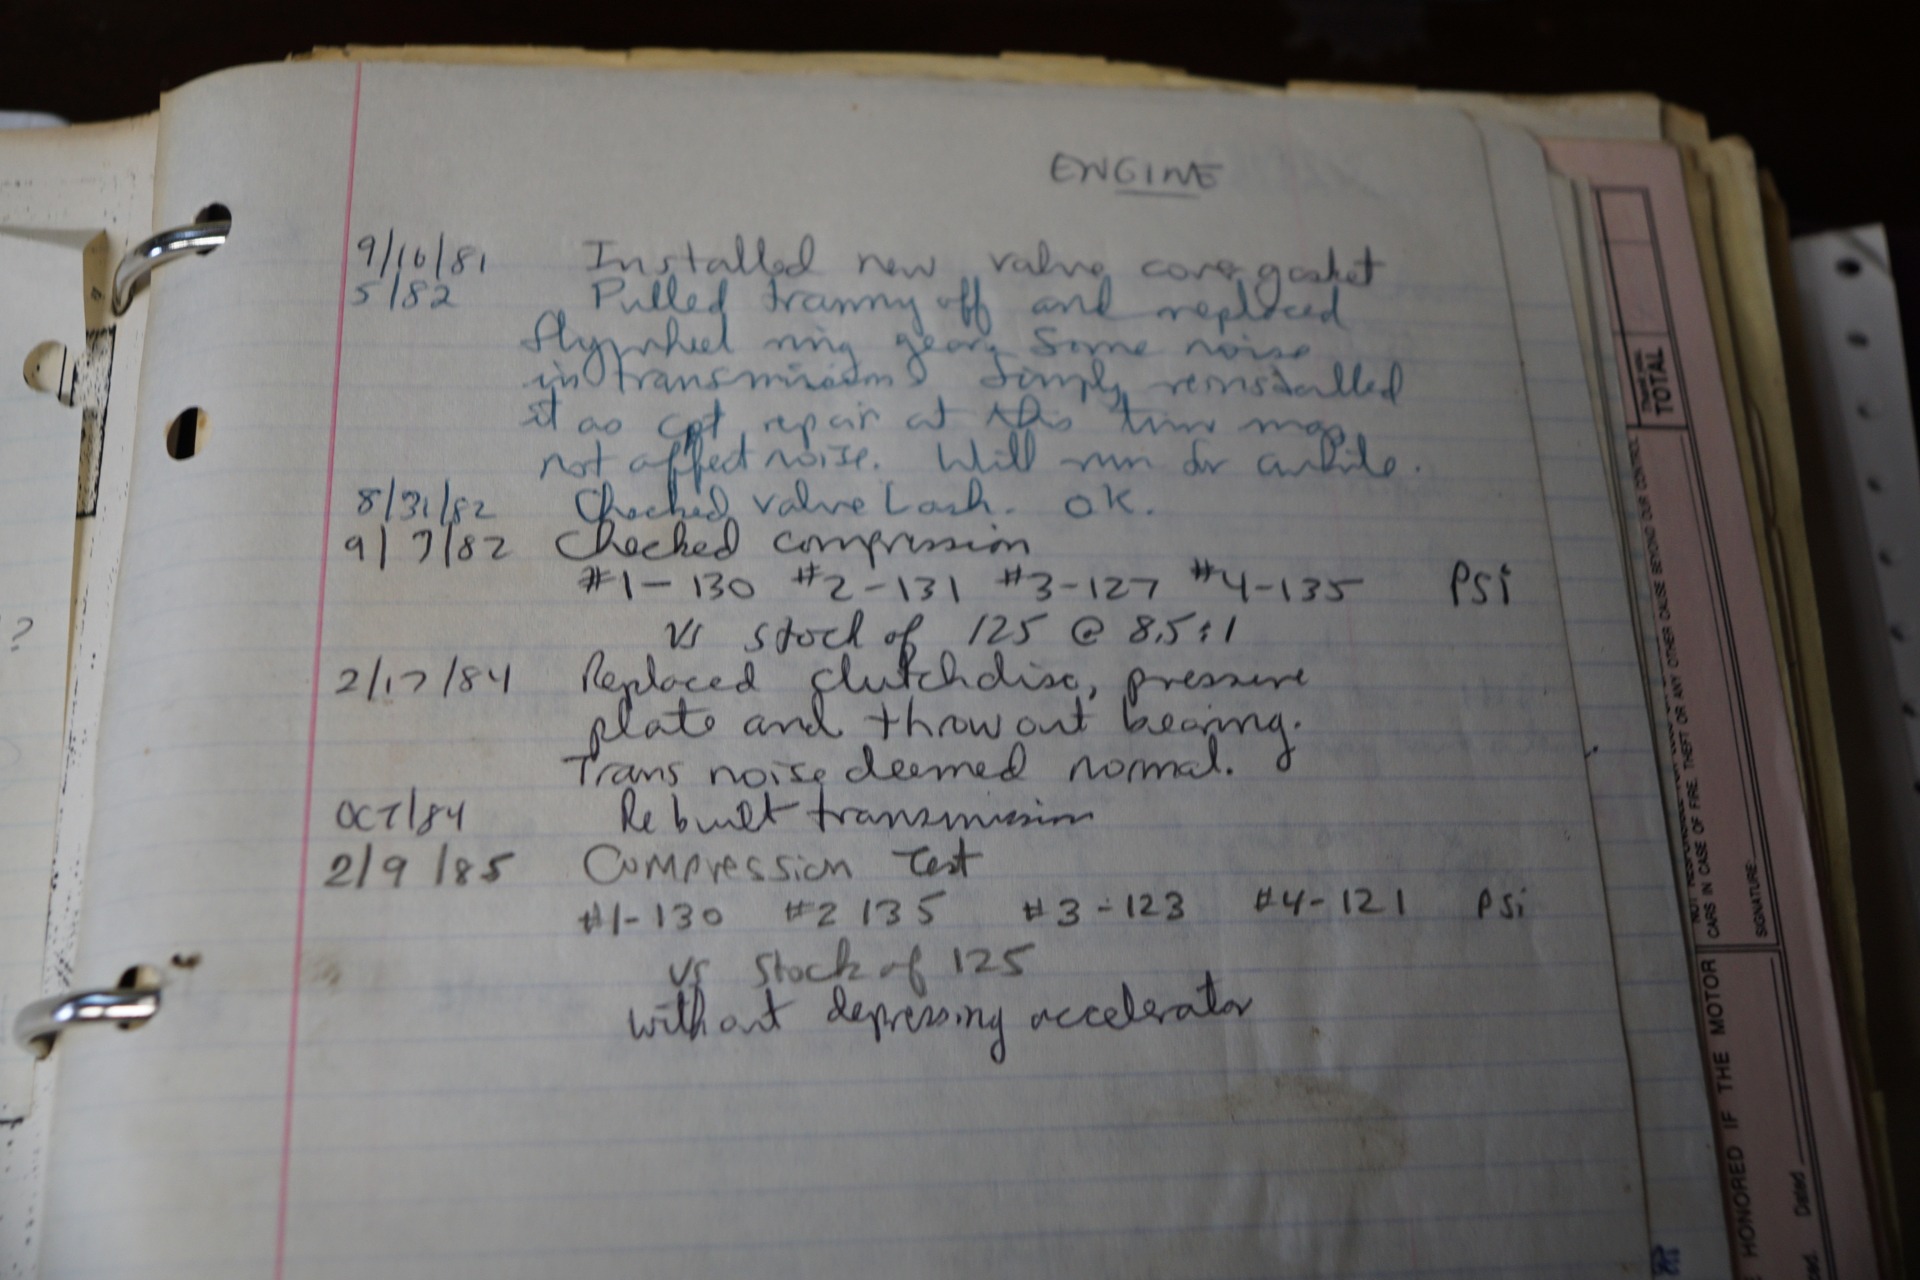 ENGINE
9/16/81 Installed new valve cover gasket
5/82 Pulled tranny off and replaced
flywheel ring gear. Some noise
in transmission. Simply reinstalled
it as cpt repair at this time may
not affect noise. Will run for awhile.
8/31/82 Checked valve Lash. OK.
9/7/82 Checked compression
#1-130 #2-131 #3-127 #4-135 PSi
vs stock of 125 @ 8.5:1
2/17/84 Replaced clutch disc, pressure
plate and throw out bearing.
Trans noise deemed normal.
OCT/84 Rebuilt transmission
2/9/85 Compression Test
#1-130 #2 135 #3-123 #4-121 PSi
vs Stock of 125
without depressing accelerator
?
TOTAL
OR ANY OTHER CAUSE BEYOND OUR CONTROL
CARS IN CASE OF FIRE, THEFT
SIGNATURE
HONORED IF THE MOTOR
Dated